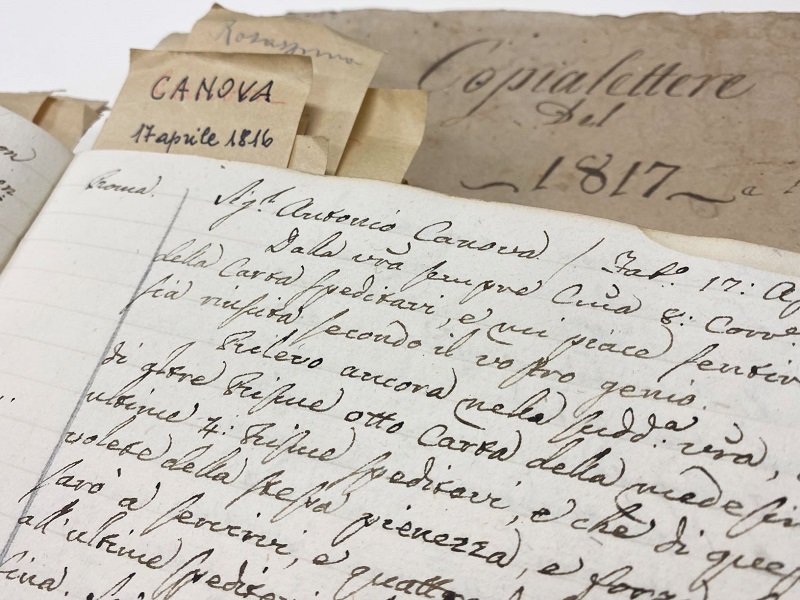 Rosaspina
CANOVA
17 aprile 1816
Copialettere
Del
1817
Roma.
Sigr. Antonio Canova / Fab.o 17: Ap
Dalla vrã sempre Cara 8: Corr.e
della Carta speditavi, e mi piace sentir
sia riusita secondo il vostro genio.
Rilevo ancora nella sudd.a vrã,
di altre Risme otto Carta della medesim
ultime 4: Risme speditavi, e che di ques
volete della stessa pienezza, e
farò a servirvi, e quattro
all'ultime spedite